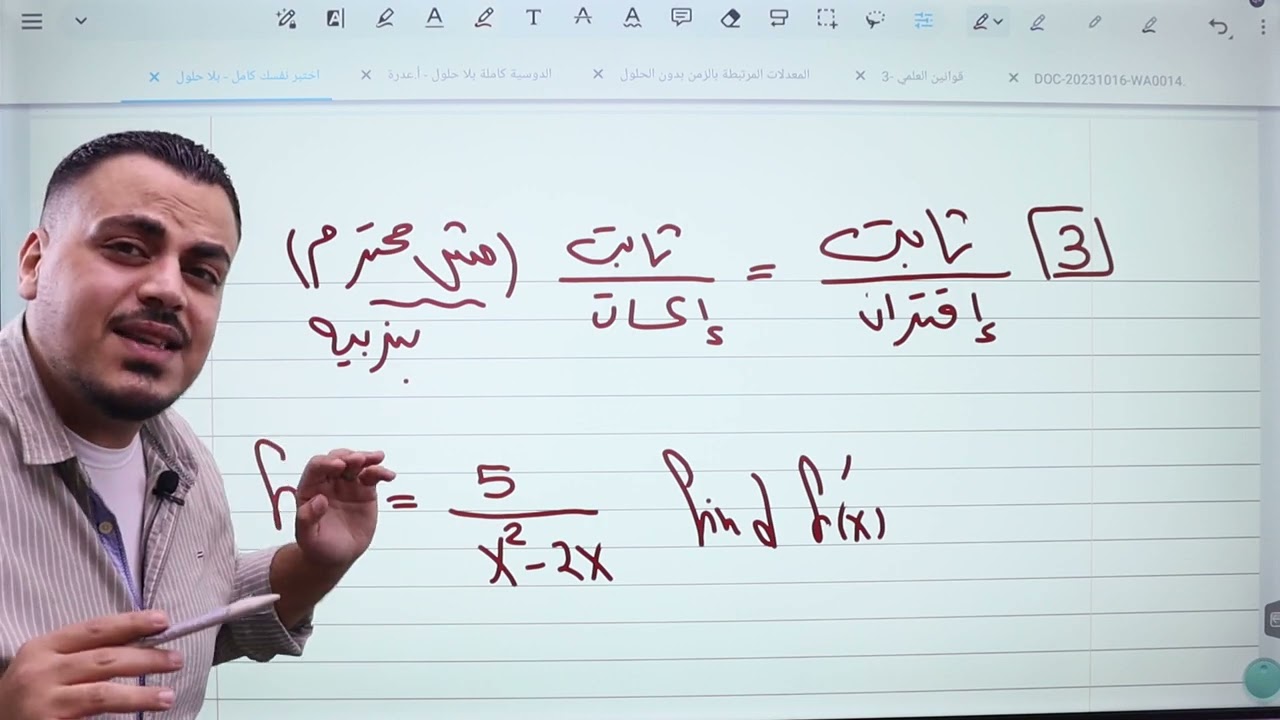 اختبر نفسك كامل - بلا حلول
الدوسية كاملة بلا حلول - أ.عدرة
المعدلات المرتبطة بالزمن بدون الحلول
قوانين العلمي -3
DOC-20231016-WA0014.
3 ثابت = ثابت (مش محترم)
إقتران
بنزبيه
= 5 find f'(x)
x² - 2x